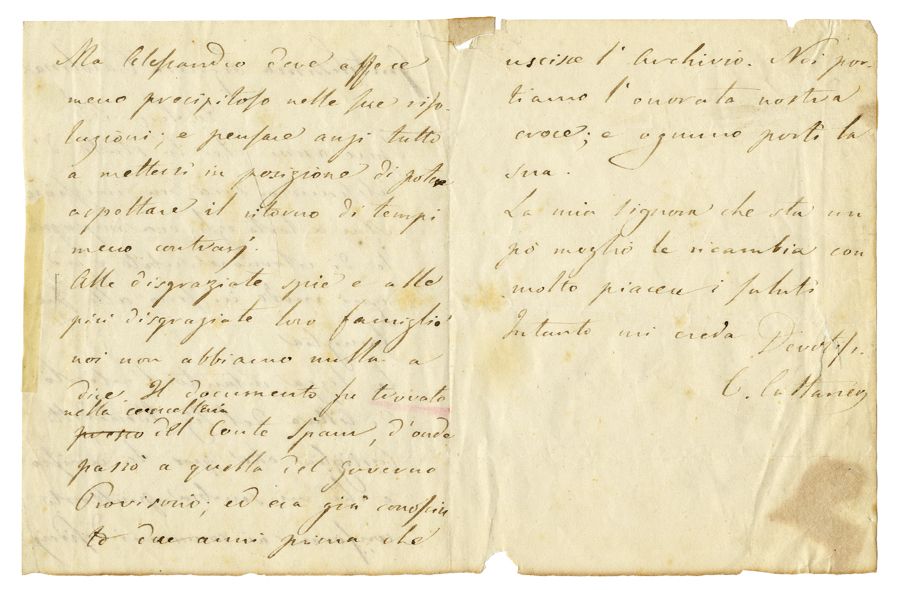 Ma Alessandro deve essere
meno precipitoso nelle sue riso-
luzioni; e pensare anzi tutto
a mettersi in posizione di poter
aspettare il ritorno di tempi
meno contrarj.
Alle disgraziate spie e alle
più disgraziate loro famiglie
noi non abbiamo nulla a
dire. Il documento fu trovato
nella cancelleria
presso del Conte Spaur, d'onde
passò a quella del Governo
Provisorio; ed era già conosciu
to due anni prima che
uscisse l'Archivio. Noi por-
tiamo l'onorata nostra
croce; e ognuno porti la
sua.
La mia signora che sta un
pò meglio le ricambia con
molto piacere i saluti
Intanto mi creda Devotiss.
C. Cattaneo